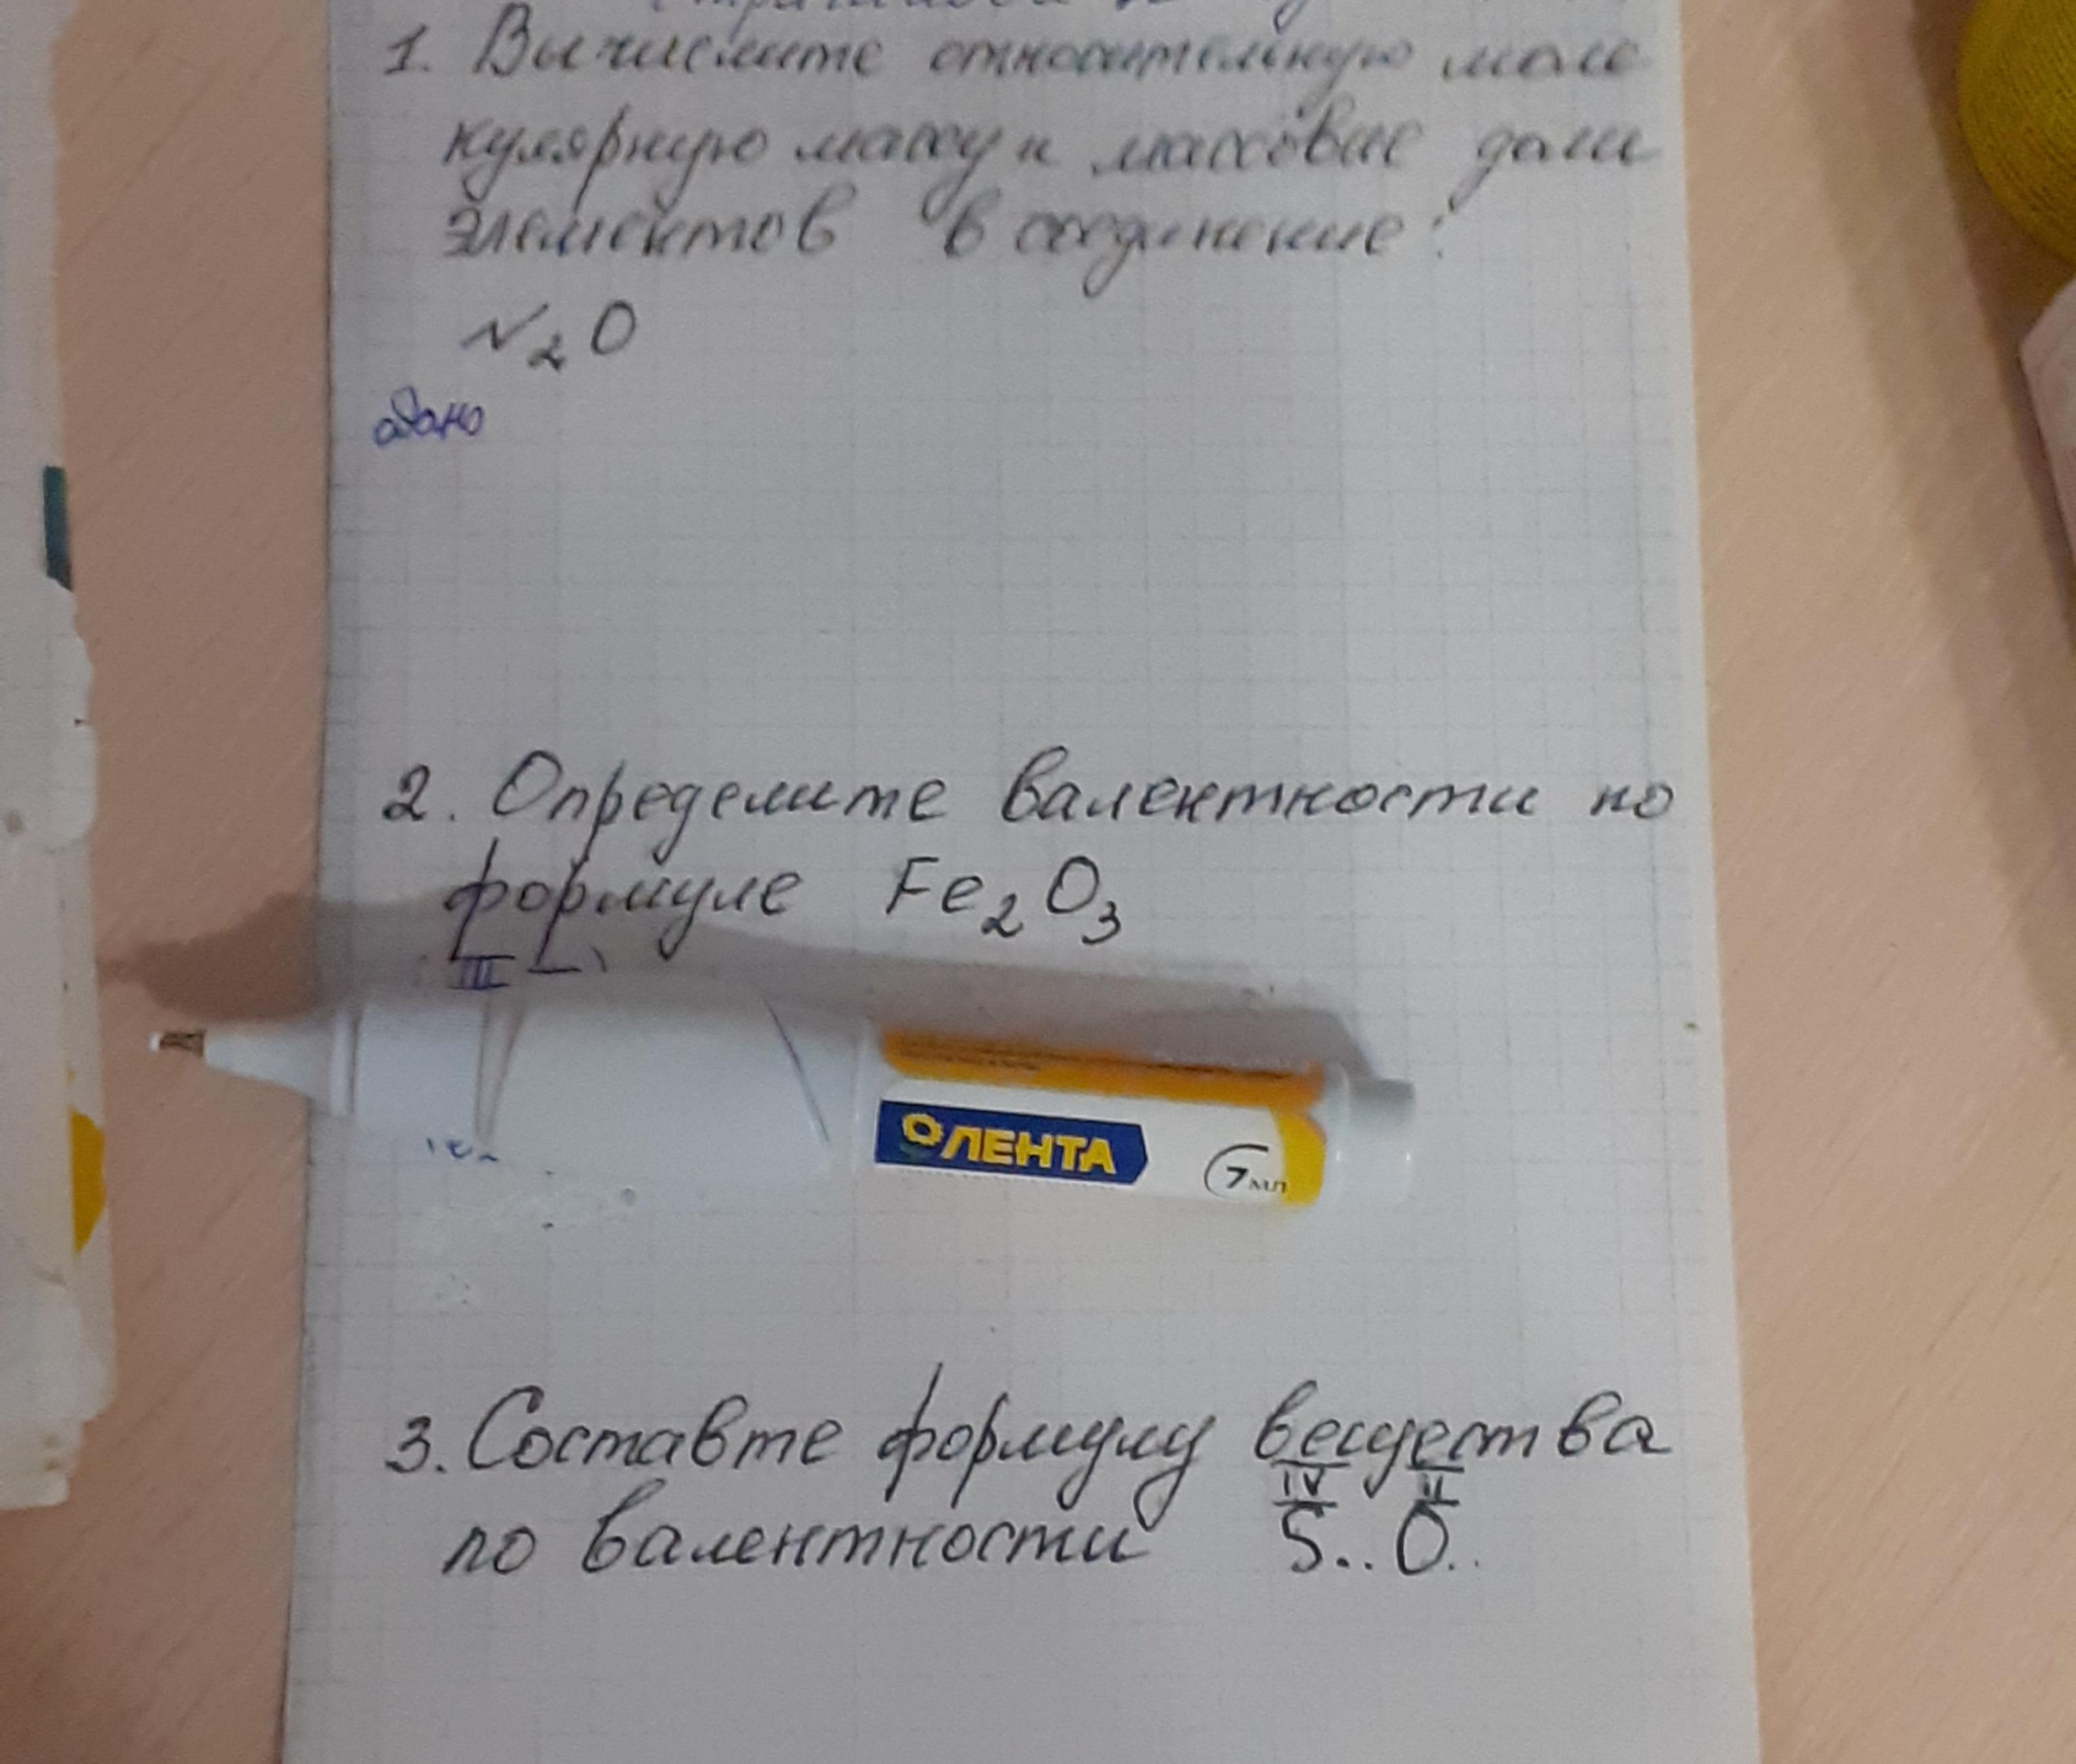 1. Вычислите относительную моле
кулярную массу и массовые доли
элементов в соединение:
N₂O
дано
2. Определите валентности по
формуле Fe₂O₃
III
ЛЕНТА
7 мл
3. Составте формулу вещества
IV II
по валентности S..O..